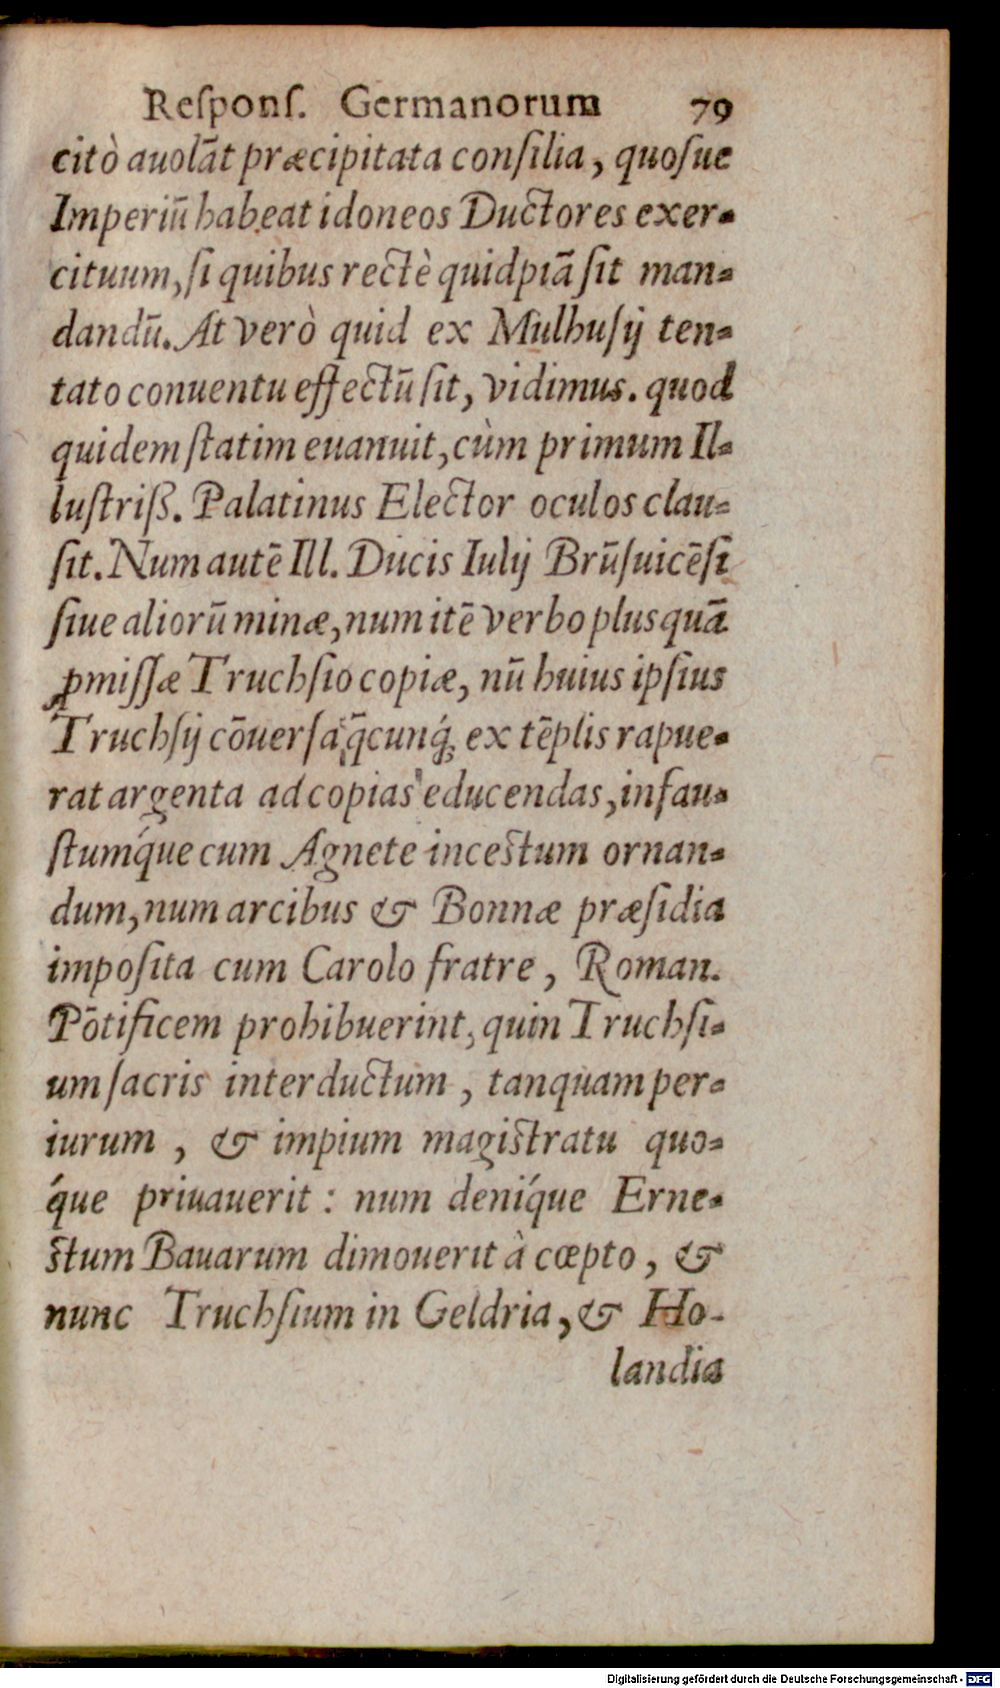 Reſponſ. Germanorum 79
citò auolãt præcipitata conſilia, quoſue
Imperiũ habeat idoneos Ductores exer-
cituum, ſi quibus rectè quidpiã ſit man-
dandũ. At verò quid ex Mulhuſij ten-
tato conuentu effectũ ſit, vidimus. quod
quidem ſtatim euanuit, cùm primum Il-
luſtriß. Palatinus Elector oculos clau-
ſit. Num autẽ Ill. Ducis Iulij Brũſuicẽſi
ſiue aliorũ minæ, num itẽ verbo plus quã
ꝓmiſſæ Truchſio copiæ, nũ huius ipſius
Truchſij cõuerſa q̃cunq́; ex tẽplis rapue-
rat argenta ad copias educendas, infau-
ſtumq́ue cum Agnete inceſtum ornan-
dum, num arcibus & Bonnæ præſidia
impoſita cum Carolo fratre, Roman.
Põtificem prohibuerint, quin Truchſi-
um ſacris interductum, tanquam per-
iurum, & impium magiſtratu quo-
q́ue priuauerit: num deniq́ue Erne-
ſtum Bauarum dimouerit à cœpto, &
nunc Truchſium in Geldria, & Ho-
landia
Digitalisierung gefördert durch die Deutsche Forschungsgemeinschaft - DFG